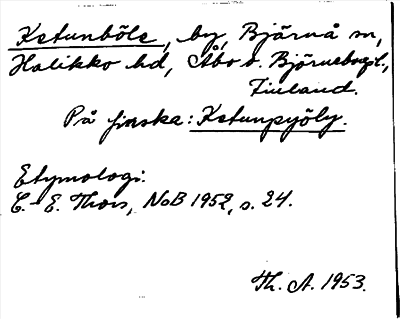 Ketunböle, by, Bjärnå sn,
Halikko hd, Åbo o. Björneborgs l.,
Finland.
På finska: Ketunpyöly.
Etymologi:
C.-E. Thors, NoB 1952, s. 24.
Th. A. 1953.